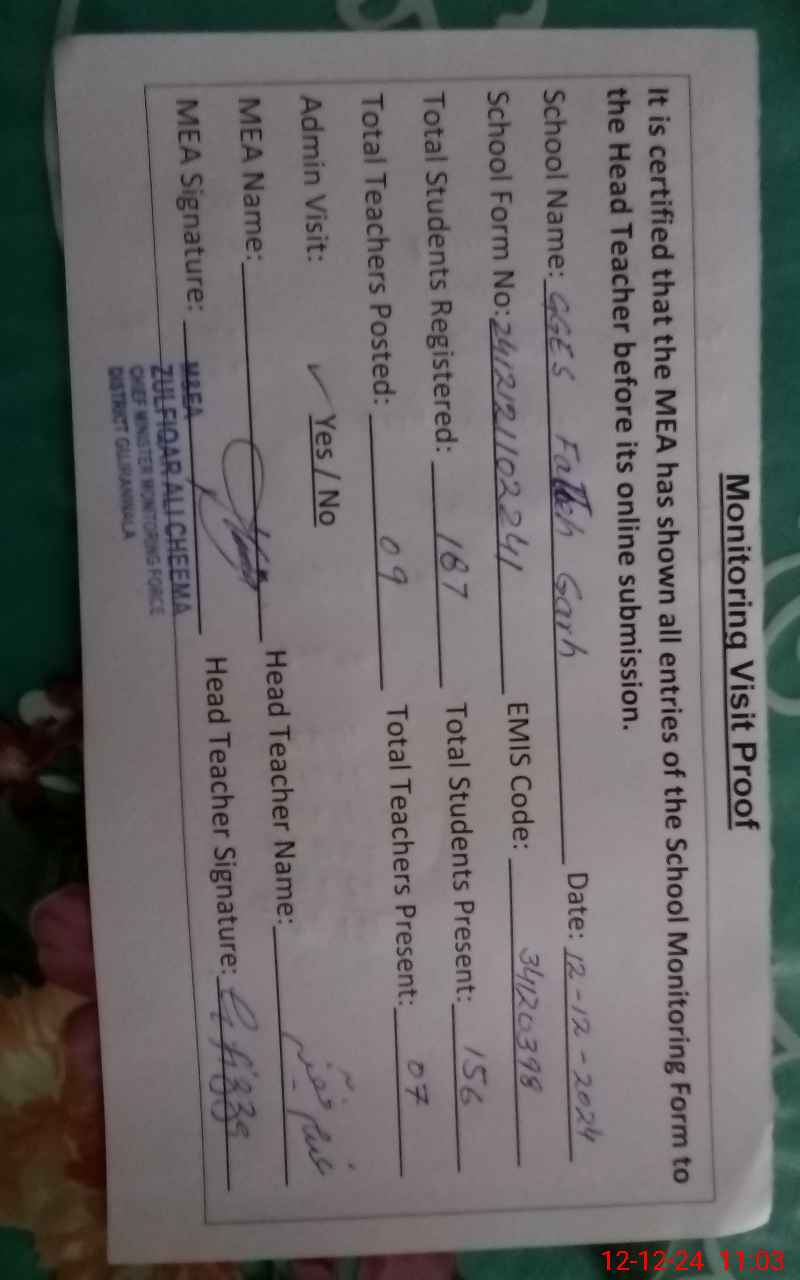 Monitoring Visit Proof
It is certified that the MEA has shown all entries of the School Monitoring Form to
the Head Teacher before its online submission.
School Name: GGES Fatteh Garh Date: 12-12-2024
School Form No: 2412121102241 EMIS Code: 34120398
Total Students Registered: 187 Total Students Present: 156
Total Teachers Posted: 09 Total Teachers Present: 07
Admin Visit: ✓ Yes / No
MEA Name: Head Teacher Name:
MEA Signature: Head Teacher Signature:
M&EA
ZULFIQAR ALI CHEEMA
CHIEF MINISTER MONITORING FORCE
DISTRICT GUJRANWALA
12-12-24 11:03